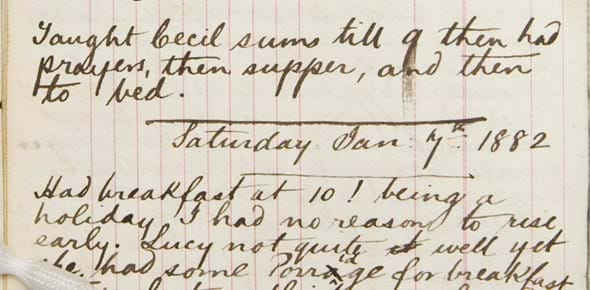 Taught Cecil sums till 9 then had
prayers, then supper, and then
to bed.
Saturday Jan: 7th 1882
Had breakfast at 10! being a
holiday I had no reason to rise
early. Lucy not quite well yet
she had some Porridge for breakfast